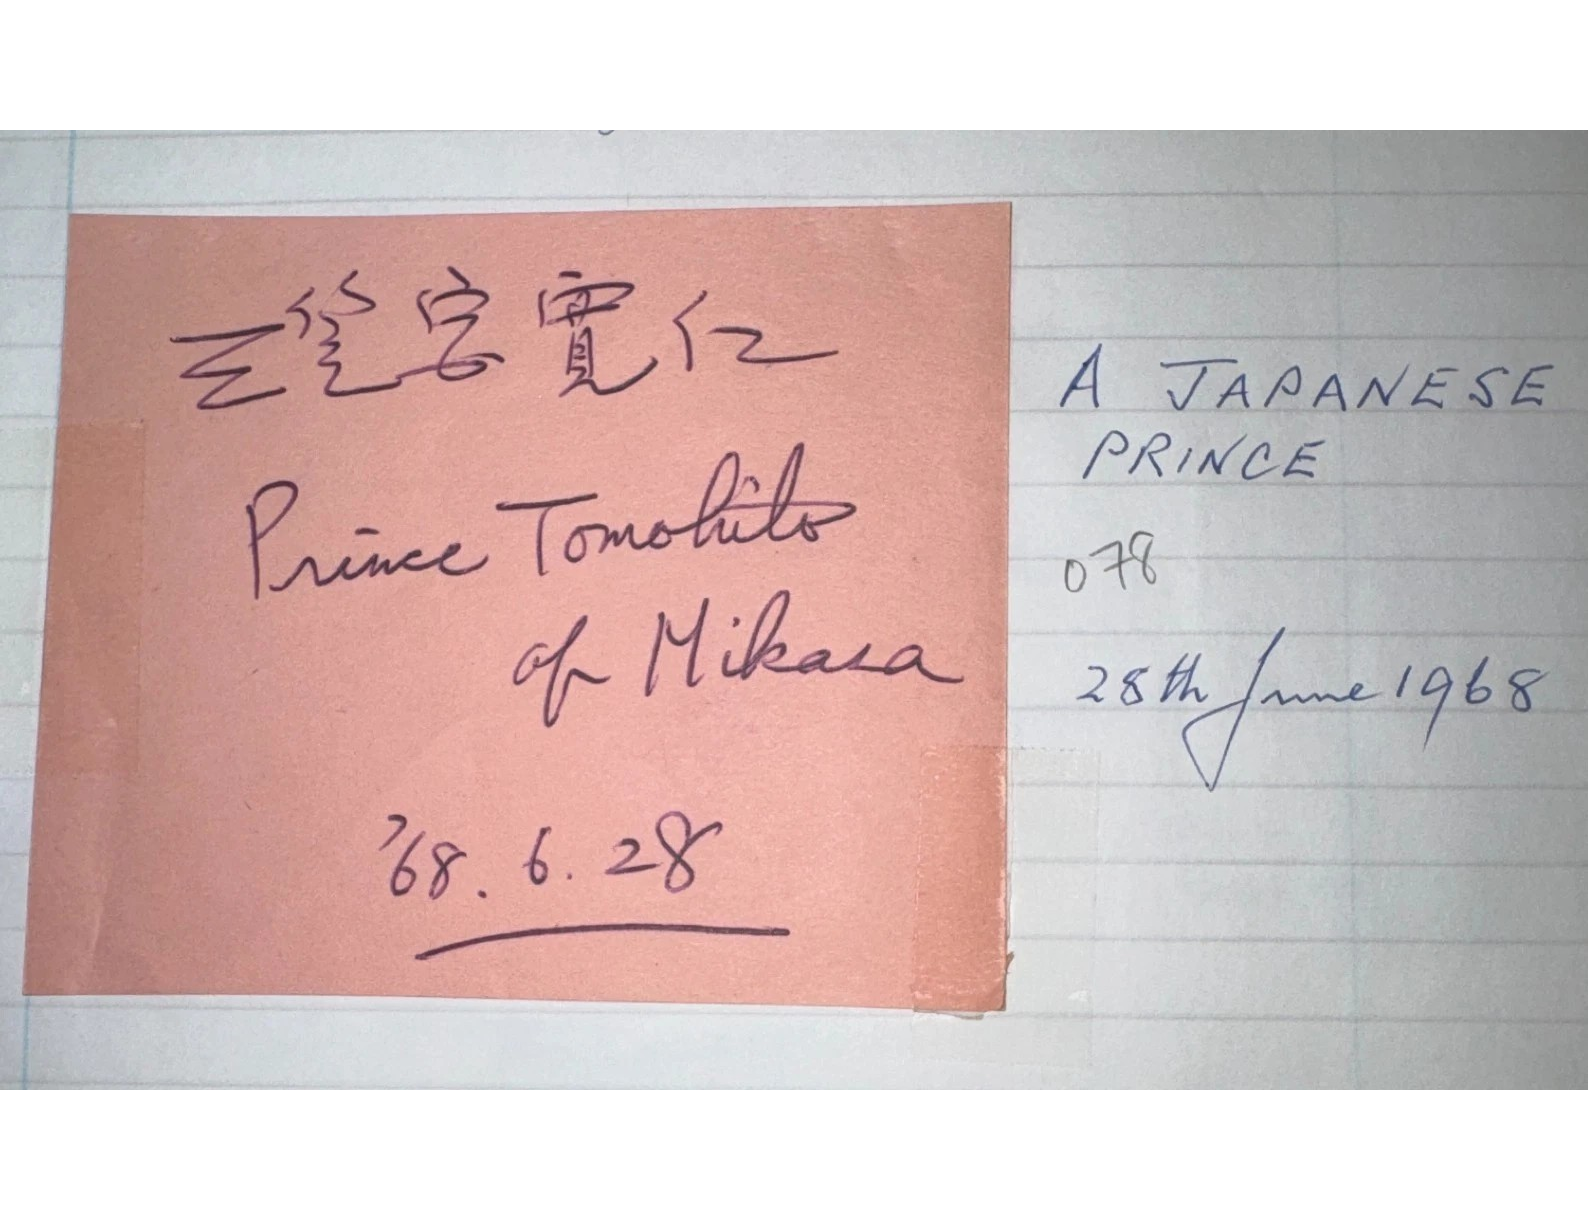 三笠宮寬仁
Prince Tomohito
of Mikasa
'68. 6. 28
A JAPANESE
PRINCE
078
28th June 1968